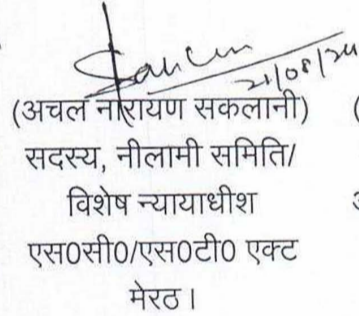 21/08/24
(अचल नारायण सकलानी)
सदस्य, नीलामी समिति/
विशेष न्यायाधीश
एस0सी0/एस0टी0 एक्ट
मेरठ।